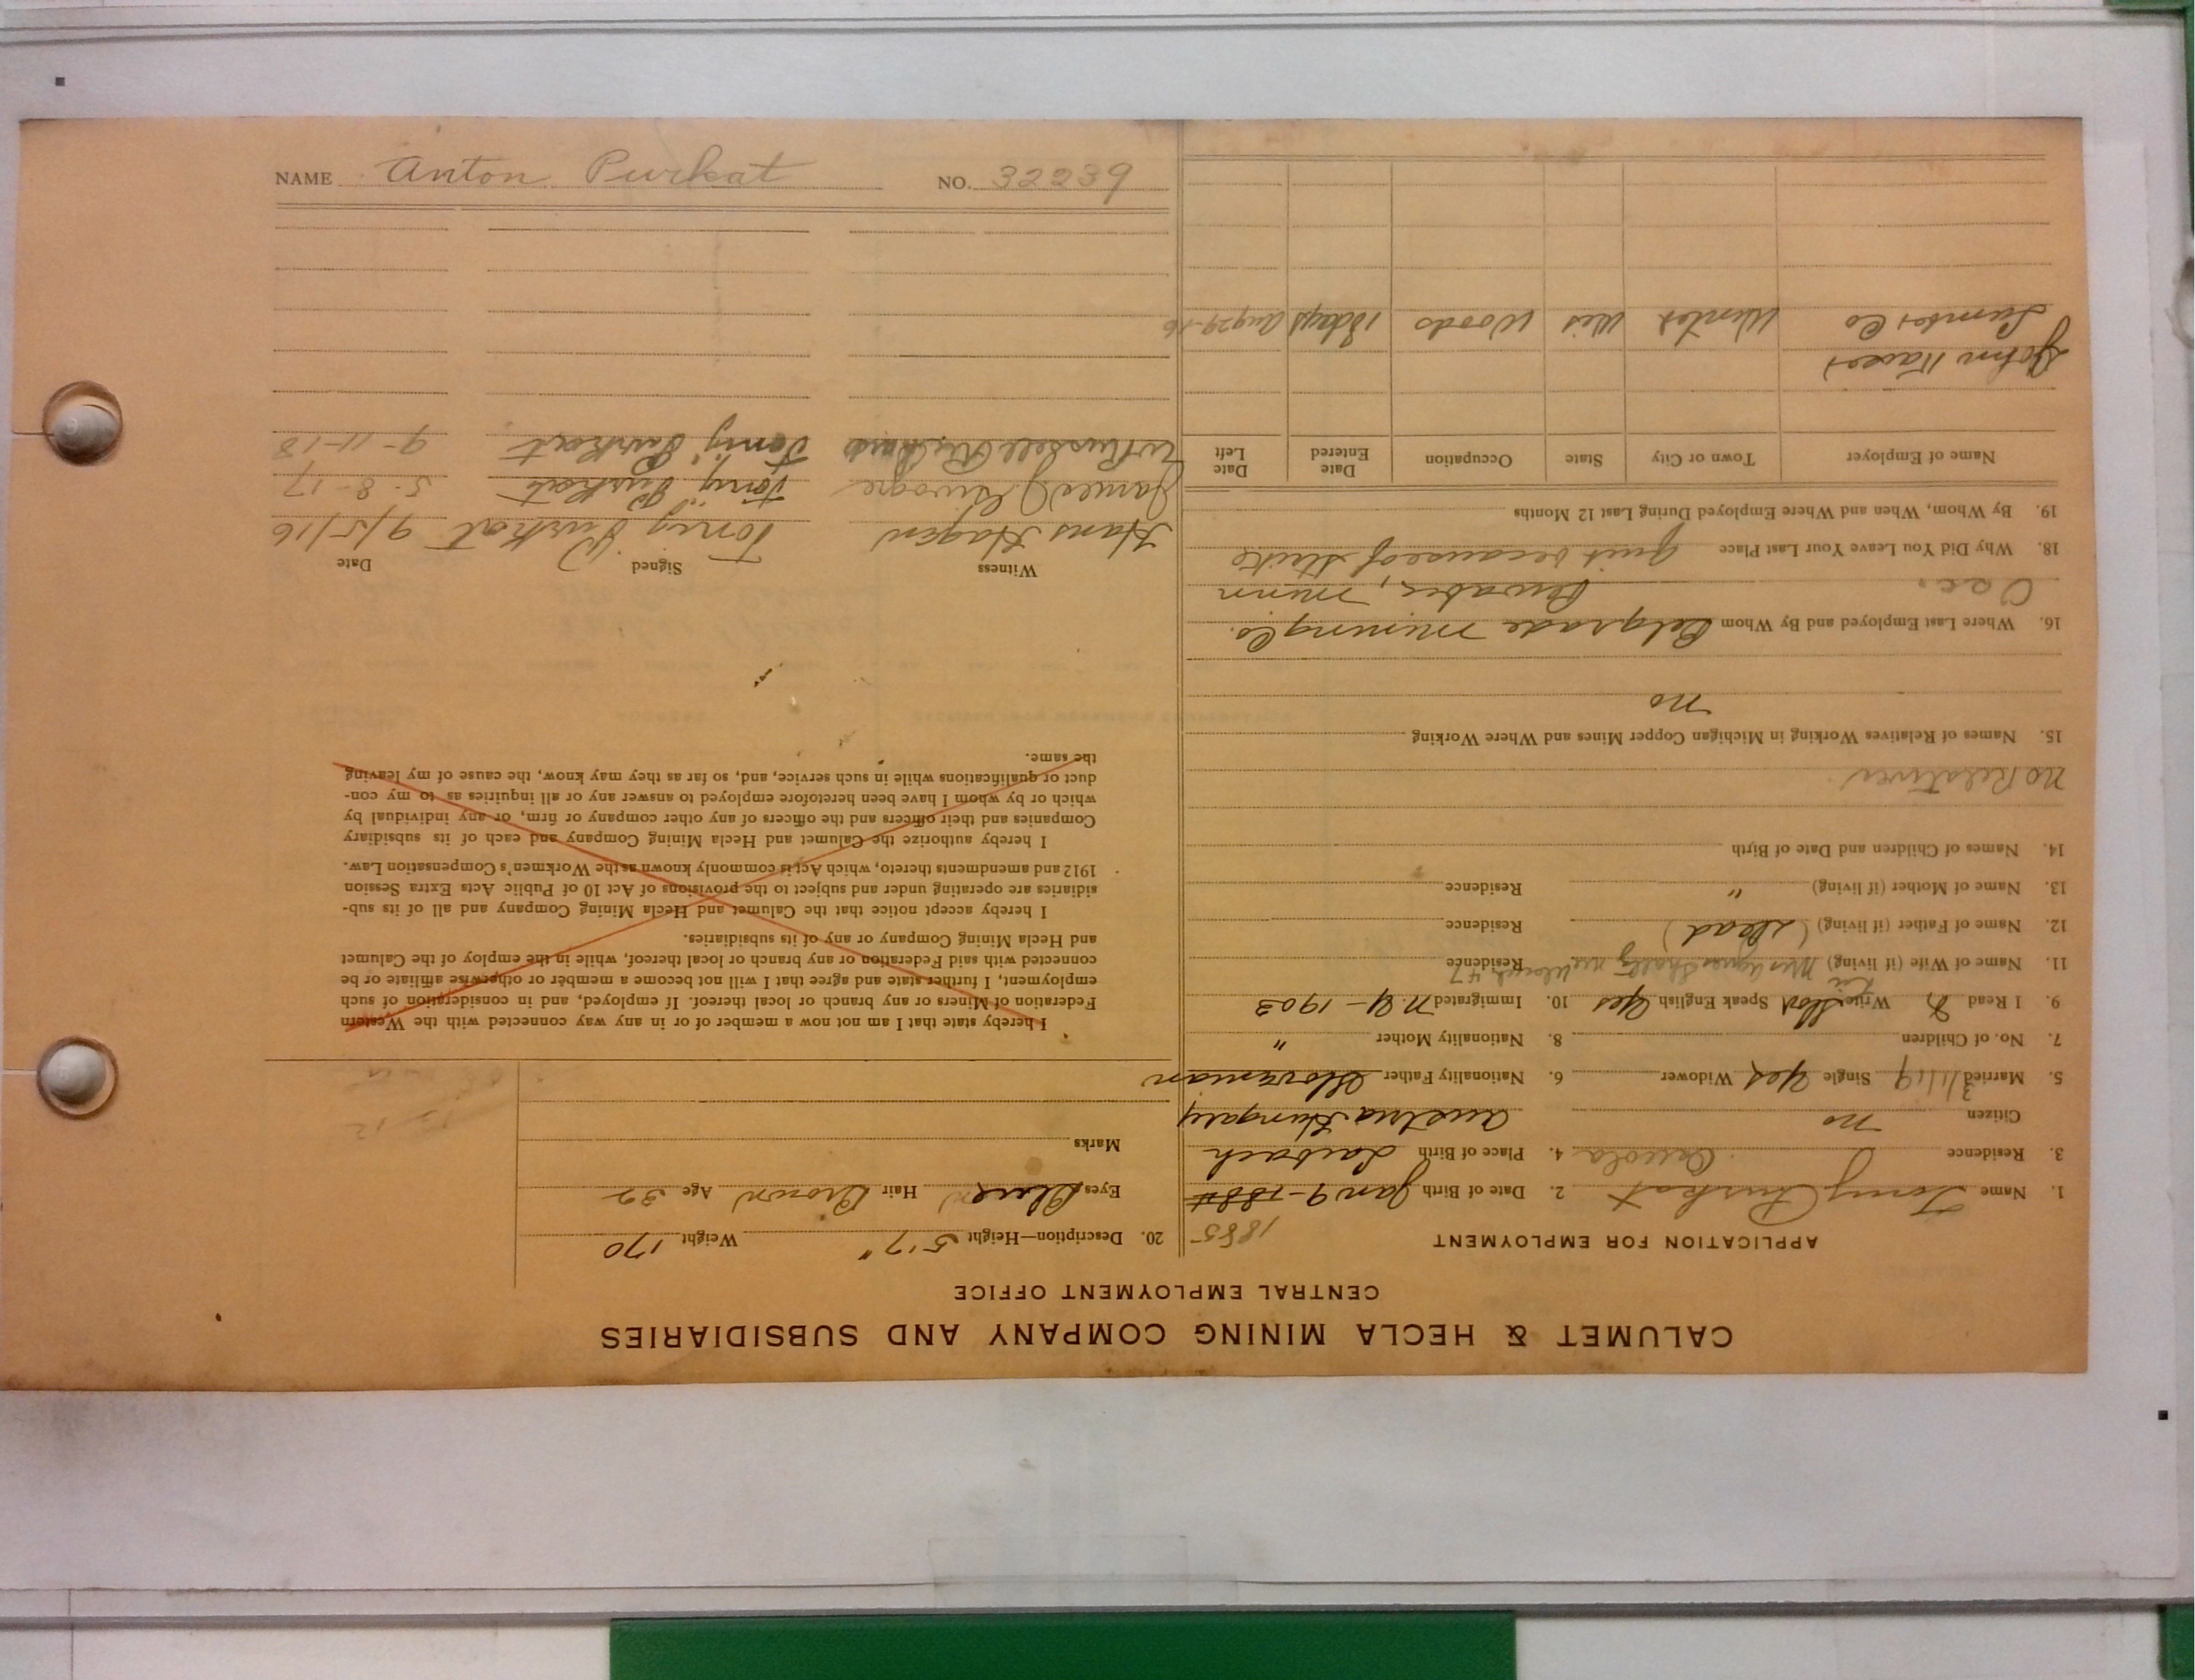 CALUMET & HECLA MINING COMPANY AND SUBSIDIARIES
CENTRAL EMPLOYMENT OFFICE
APPLICATION FOR EMPLOYMENT
1885
1. Name Tony Purkat 2. Date of Birth Jan 9-1884
3. Residence Osceola 4. Place of Birth Laibach
Citizen no Austria Hungary
5. Married 3/1/19 Single Yes Widower 6. Nationality Father Slovenian
7. No. of Children 8. Nationality Mother "
9. I Read & Write Slov Speak English Yes 10. Immigrated N.Y- 1903
11. Name of Wife (if living) Mrs Agnes Residence
12. Name of Father (if living) (Dead) Residence
13. Name of Mother (if living) " Residence
14. Names of Children and Date of Birth
no Relatives
15. Names of Relatives Working in Michigan Copper Mines and Where Working
no
16. Where Last Employed and By Whom Belgrade Mining Co.
Occ. Biwabic, Minn
18. Why Did You Leave Your Last Place Quit because of strike
19. By Whom, When and Where Employed During Last 12 Months
Name of Employer Town or City State Occupation Date Entered Date Left
John
Lumber Co Winter Wis Woods 18 days Aug 29-16
20. Description—Height 5'7" Weight 170
Eyes Blue Hair Brown Age 32
Marks
I hereby state that I am not now a member of or in any way connected with the Western
Federation of Miners or any branch or local thereof. If employed, and in consideration of such
employment, I further state and agree that I will not become a member or otherwise affiliate or be
connected with said Federation or any branch or local thereof, while in the employ of the Calumet
and Hecla Mining Company or any of its subsidiaries.
I hereby accept notice that the Calumet and Hecla Mining Company and all of its sub-
sidiaries are operating under and subject to the provisions of Act 10 of Public Acts Extra Session
1912 and amendments thereto, which Act is commonly known as the Workmen's Compensation Law.
I hereby authorize the Calumet and Hecla Mining Company and each of its subsidiary
Companies and their officers and the officers of any other company or firm, or any individual by
which or by whom I have been heretofore employed to answer any or all inquiries as to my con-
duct or qualifications while in such service, and, so far as they may know, the cause of my leaving
the same.
Witness Signed Date
Hans Hagen Tony Purkat 9/5/16
James Tony Purkat 5-8-17
W Russell Richards Tony Purkat 9-11-18
NAME Anton Purkat NO. 32239